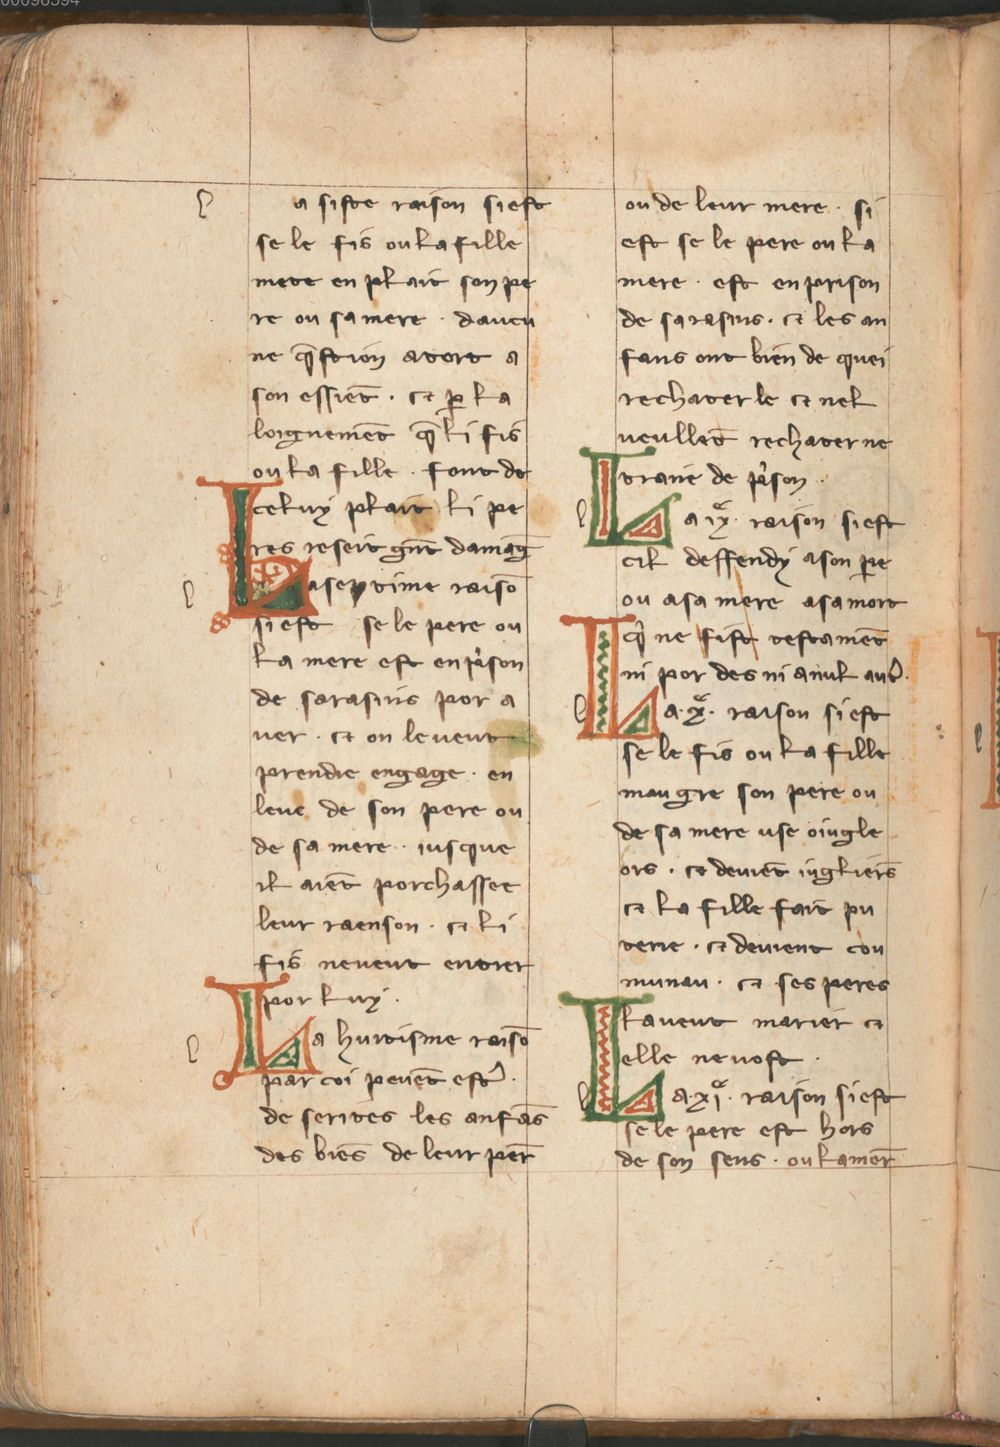 a siste raison si est
se le fis ou la fille
mete en plait son pe
re ou sa mere · daucu
ne q̄stion atort a
son essiēt · et ꝑ la
loignemēt q̄ li fis
ou la fille · font de
celuy plait li pe
res reseit gn̄t damaḡ
La septime raisō
si est se le pere ou
la mere est en pͥson
de sarasins por a
uer · et on le veut
prendre en gage · en
leue de son pere ou
de sa mere · iusque
il aiēt porchassee
leur raenson · et li
fis ne veut entrer
por luy ·
La huitisme raisō
par coi peuēt estͬ ·
de serites les anfās
des biēs de leur per̄
ou de leur mere · si
est se le pere ou la
mere · est en prison
de sarasins · et les an
fans ont bien de quei
rechater le et nel
ueullēt rechater ne
traire de pͥson ·
La ixͣ · raison si est
cil deffendy a son ꝑe
ou a sa mere a sa mort
qͥ ne fist testamēt
ni por des ni anul autͬ ·
La · xͣ · raison si est
se le fis ou la fille
maugre son pere ou
de sa mere use o iugle
ors · et deuiēt iugliers
et la fille fait pu
terie · et deuient cou
munau · et ses peres
la veut marier et
elle ne vost ·
La xiͣ · raison si est
se le pere est hors
de son sens · ou la mer̄